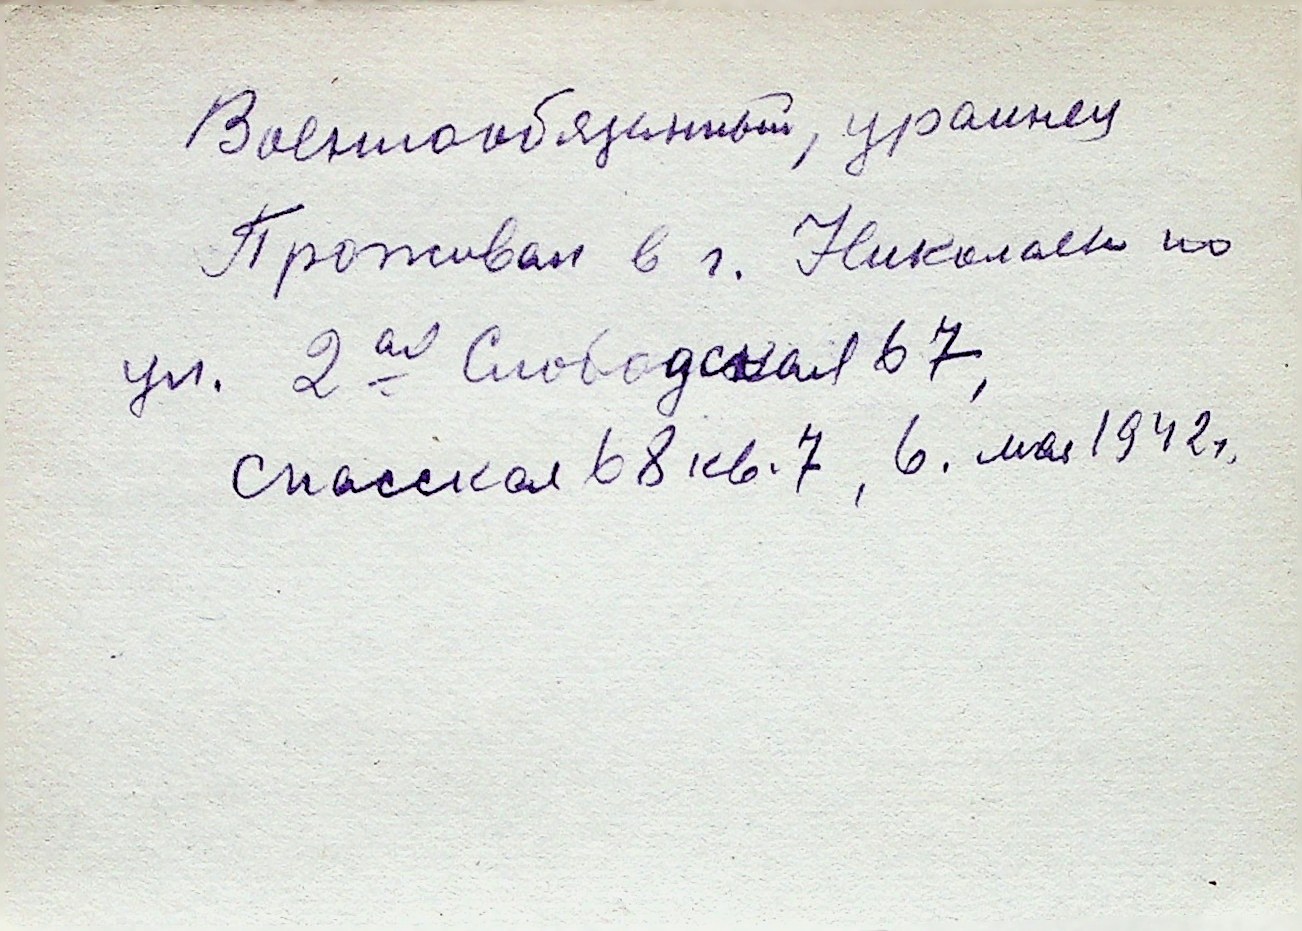 Военнообязанный, ураинец
Проживал в г. Николаев по
ул. 2 ая Слободская 67,
Спасская 68 кв. 7, 6. мая 1942 г.